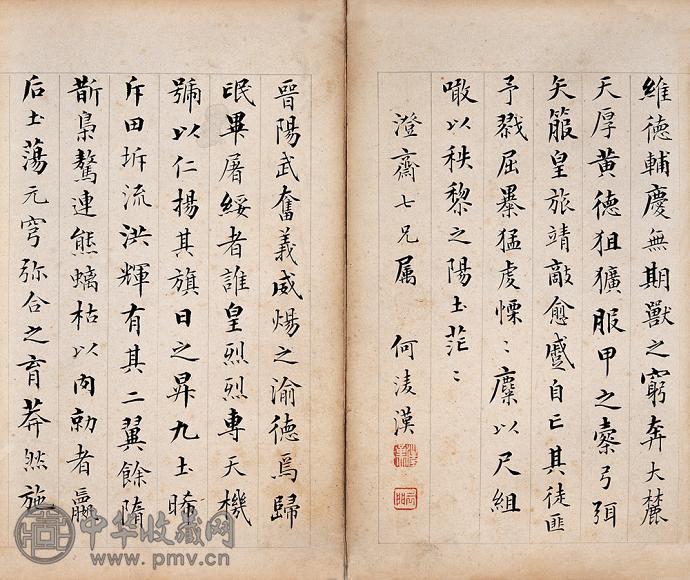 晉陽武奮義威煬之渝德焉歸
氓畢屠綏者誰皇烈烈專天機
號以仁揚其旗日之昇九土晞
斥田圻流洪輝有其二翼餘隋
斮梟驁連熊螭枯以肉勍者羸
后土蕩元穹弥合之育莽然施
維德輔慶無期獸之窮奔大麓
天厚黃德狙獷服甲之櫜弓弭
矢箙皇旅靖敵愈蹙自亡其徒匪
予戮屈㬥猛虔慄〻麋以尺組
噉以秩黎之陽土茫〻
澄齋七兄属 何淩漢
中华收藏网
www.pmv.cn